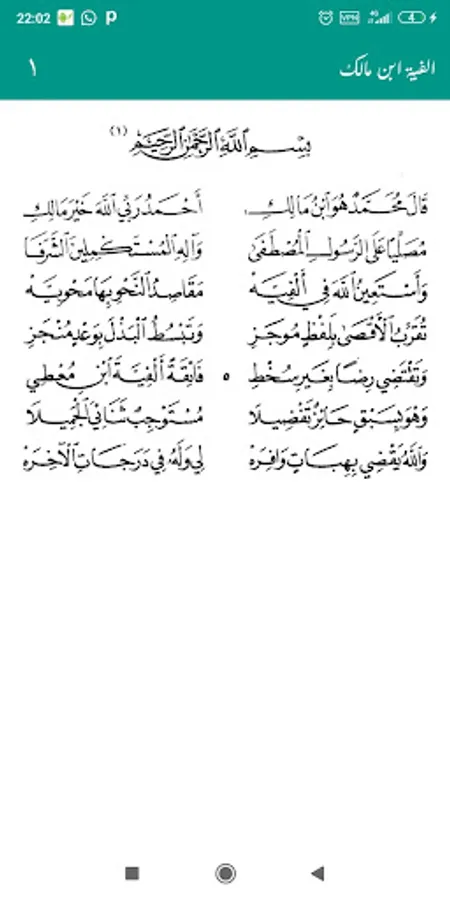 22:02
4G
VPN
الفية ابن مالك ١
بِسْمِ اللَّهِ الرَّحْمَٰنِ الرَّحِيمِ (١)
قَالَ مُحَمَّدٌ هُوَ ابْنُ مَالِكِ أَحْمَدُ رَبِّي اللَّهَ خَيْرَ مَالِكِ
مُصَلِّيًا عَلَى الرَّسُولِ الْمُصْطَفَى وَآلِهِ الْمُسْتَكْمِلِينَ الشَّرَفَا
وَأَسْتَعِينُ اللَّهَ فِي أَلْفِيَّهْ مَقَاصِدُ النَّحْوِ بِهَا مَحْوِيَّهْ
تُقَرِّبُ الْأَقْصَى بِلَفْظٍ مُوجَزِ وَتَبْسُطُ الْبَذْلَ بِوَعْدٍ مُنْجَزِ
وَتَقْتَضِي رِضًا بِغَيْرِ سُخْطِ ٥ فَائِقَةً أَلْفِيَّةَ ابْنِ مُعْطِي
وَهُوَ بِسَبْقٍ حَائِزٌ تَفْضِيلَا مُسْتَوْجِبٌ ثَنَائِيَ الْجَمِيلَا
وَاللَّهُ يَقْضِي بِهِبَاتٍ وَافِرَهْ لِي وَلَهُ فِي دَرَجَاتِ الْآخِرَهْ